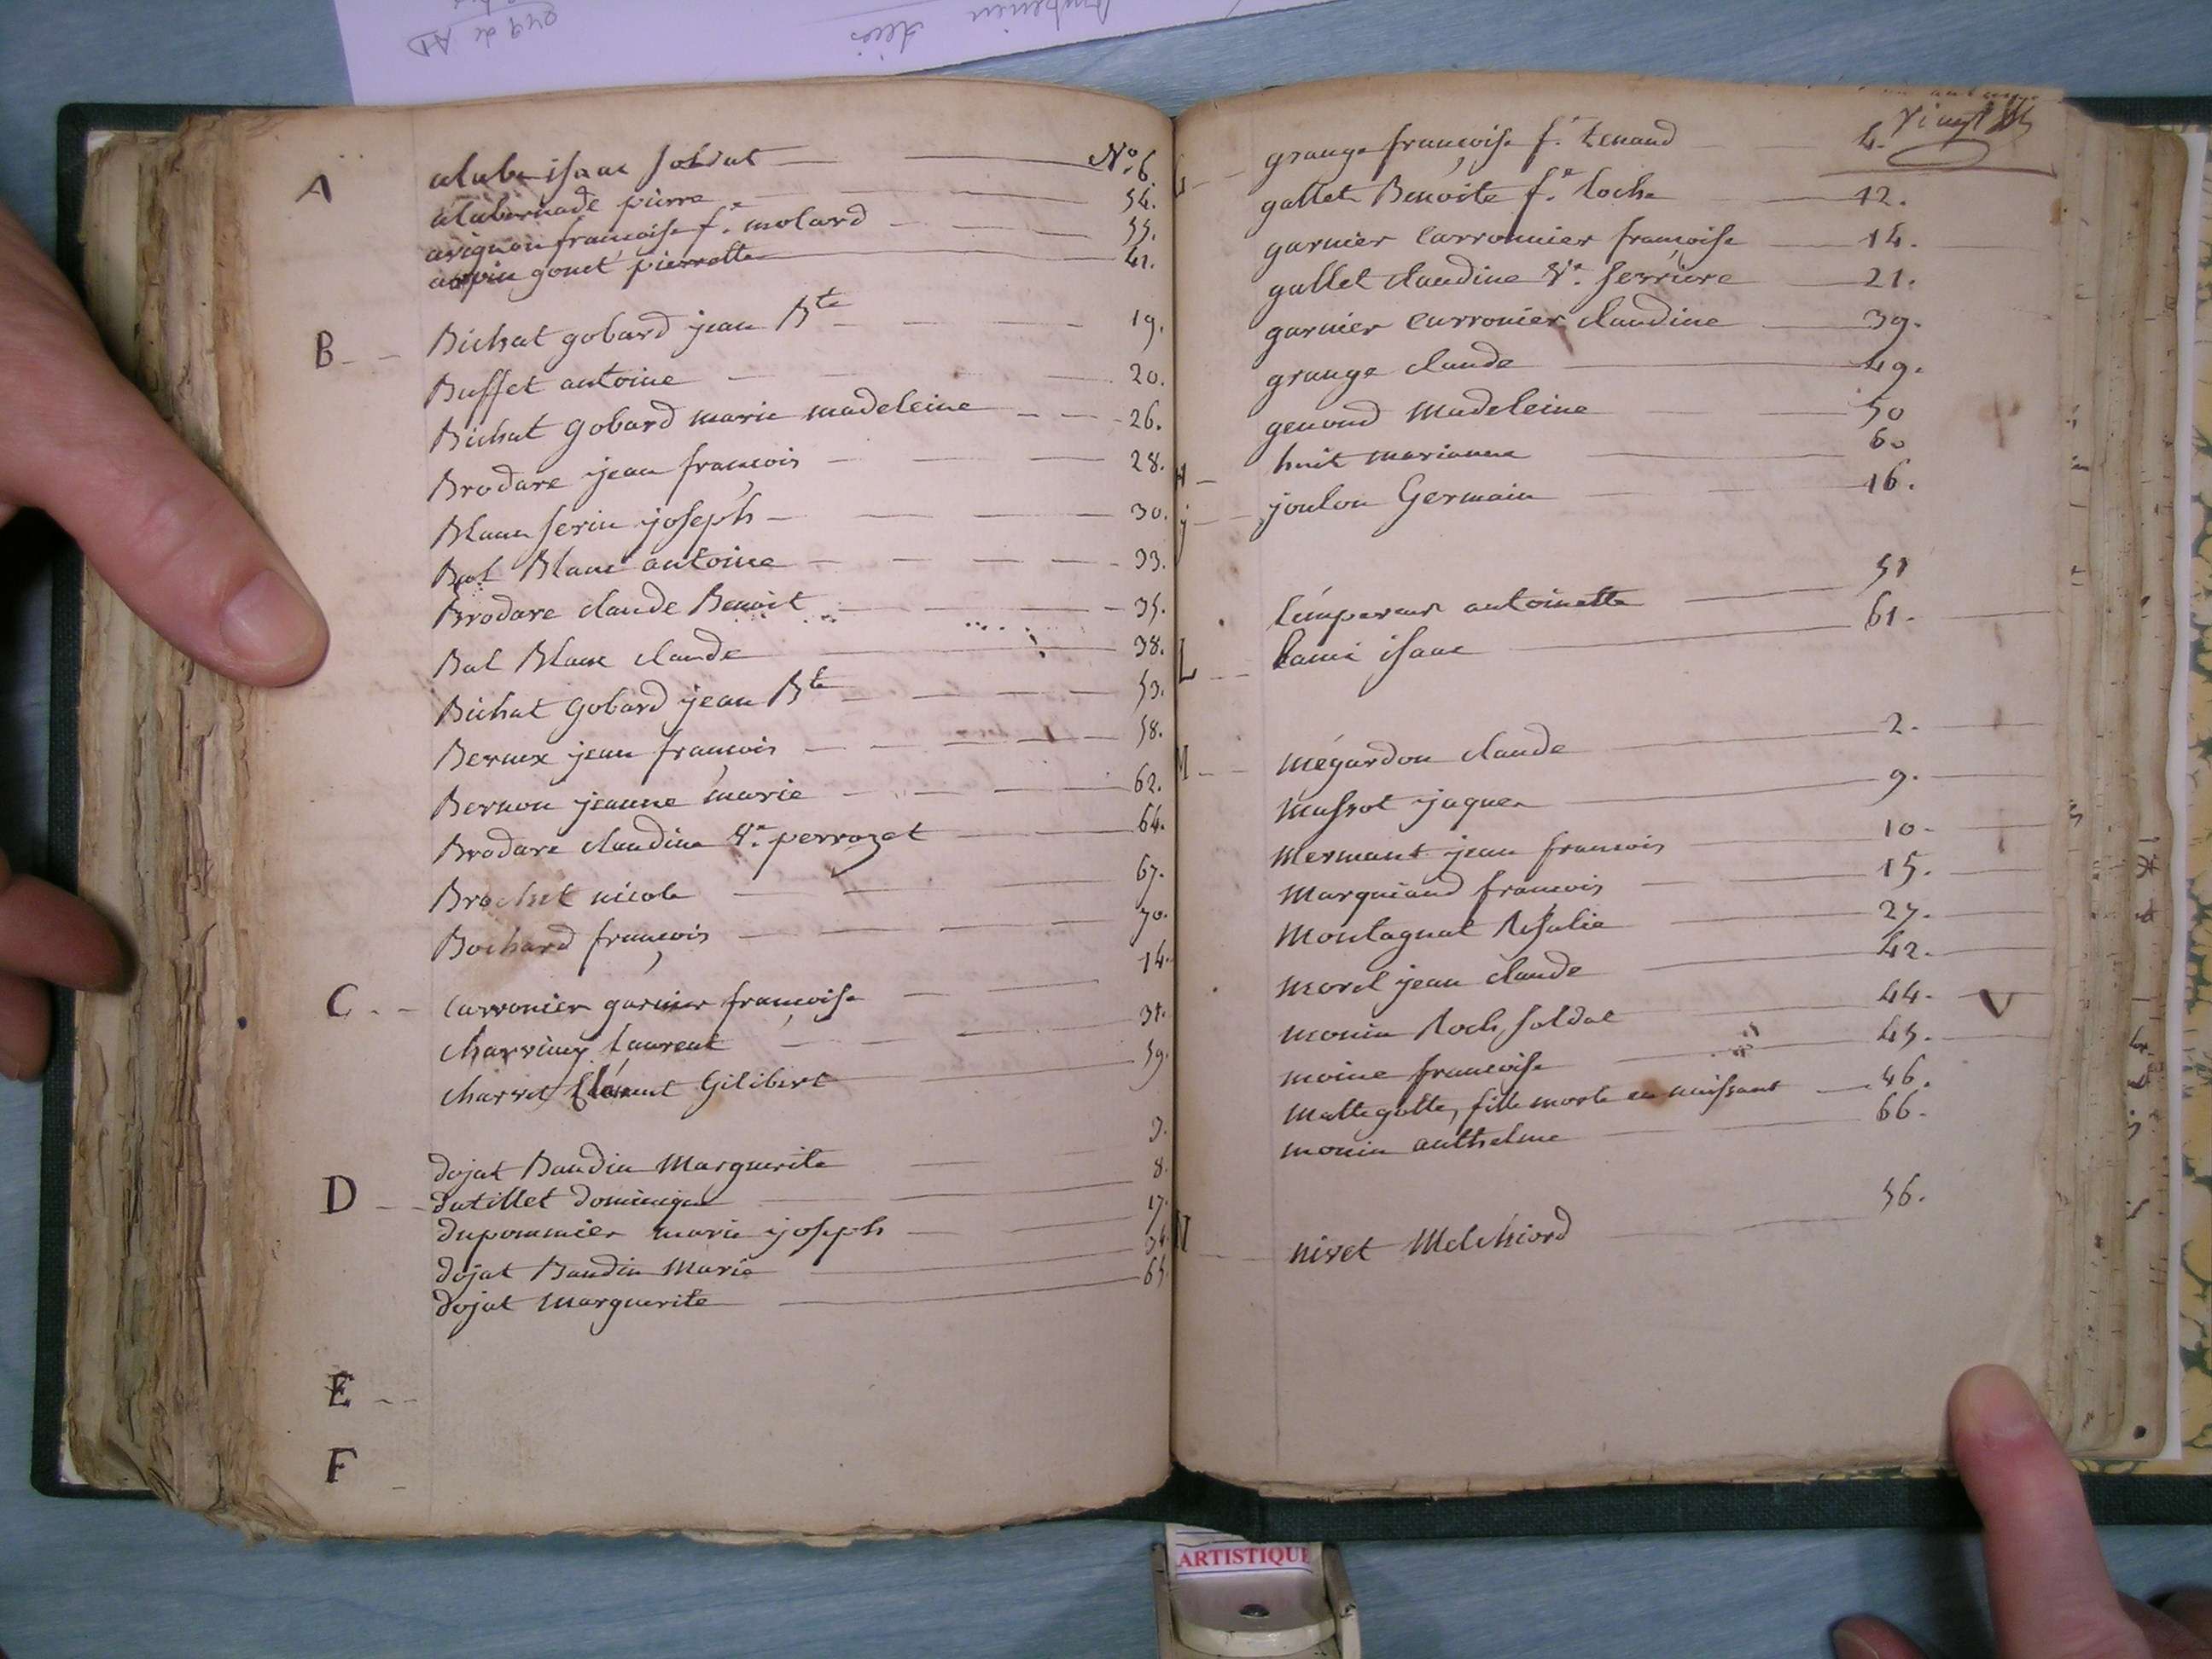 A alabe isaac soldat N.o 6
alabernade pierre 54.
avignon francoise f.e molard 55.
arpin gonet pierrette 41.
B Bichat gobard jean B.te 19.
Buffet antoine 20.
Bichat Gobard marie madeleine 26.
Brodare jean françois 28.
Blanc serin joseph 30.
Bal Blanc antoine 33.
Brodare claude Benoit 35.
Bal Blanc claude 38.
Bichat Gobard jean B.te 53.
Bernex jean françois 58.
Bernon jeanne marie 62.
Brodare claudine V.e perrozet 64.
Brochet nicole 67.
Bochard françois 70.
C carronier garnier françoise 14.
charriny Laurent 31.
charvet Clément Gilibert 59.
D dojat Baudin Marguerite 3.
dutillet dominique 8.
dupommier marie joseph 17.
dojat Baudin Marie 34.
dojat Marguerite 65.
E
F
grange françoise f.e tenand 4.
vingt
gallet Benoite f.e Loche 12.
garnier carronnier françoise 14.
gallet claudine V.e ferriere 21.
garnier carronier claudine 39.
grange claude 49.
genond Madeleine 50
H huit marianne 60
j joulon Germain 16.
L L'empereur antoinette 51
Lami isaac 61.
M mégardon claude 2.
massot jaques 9.
mermant jean francois 10.
Marguiand francois 15.
Montagnat Rosalie 27.
morel jean claude 42.
monin Roch, soldat 44.
moine francoise 45.
Mattegatte, fille morte en naissant 46.
monin anthelme 66.
N nivet Melchiord 56.
ARTISTIQUE